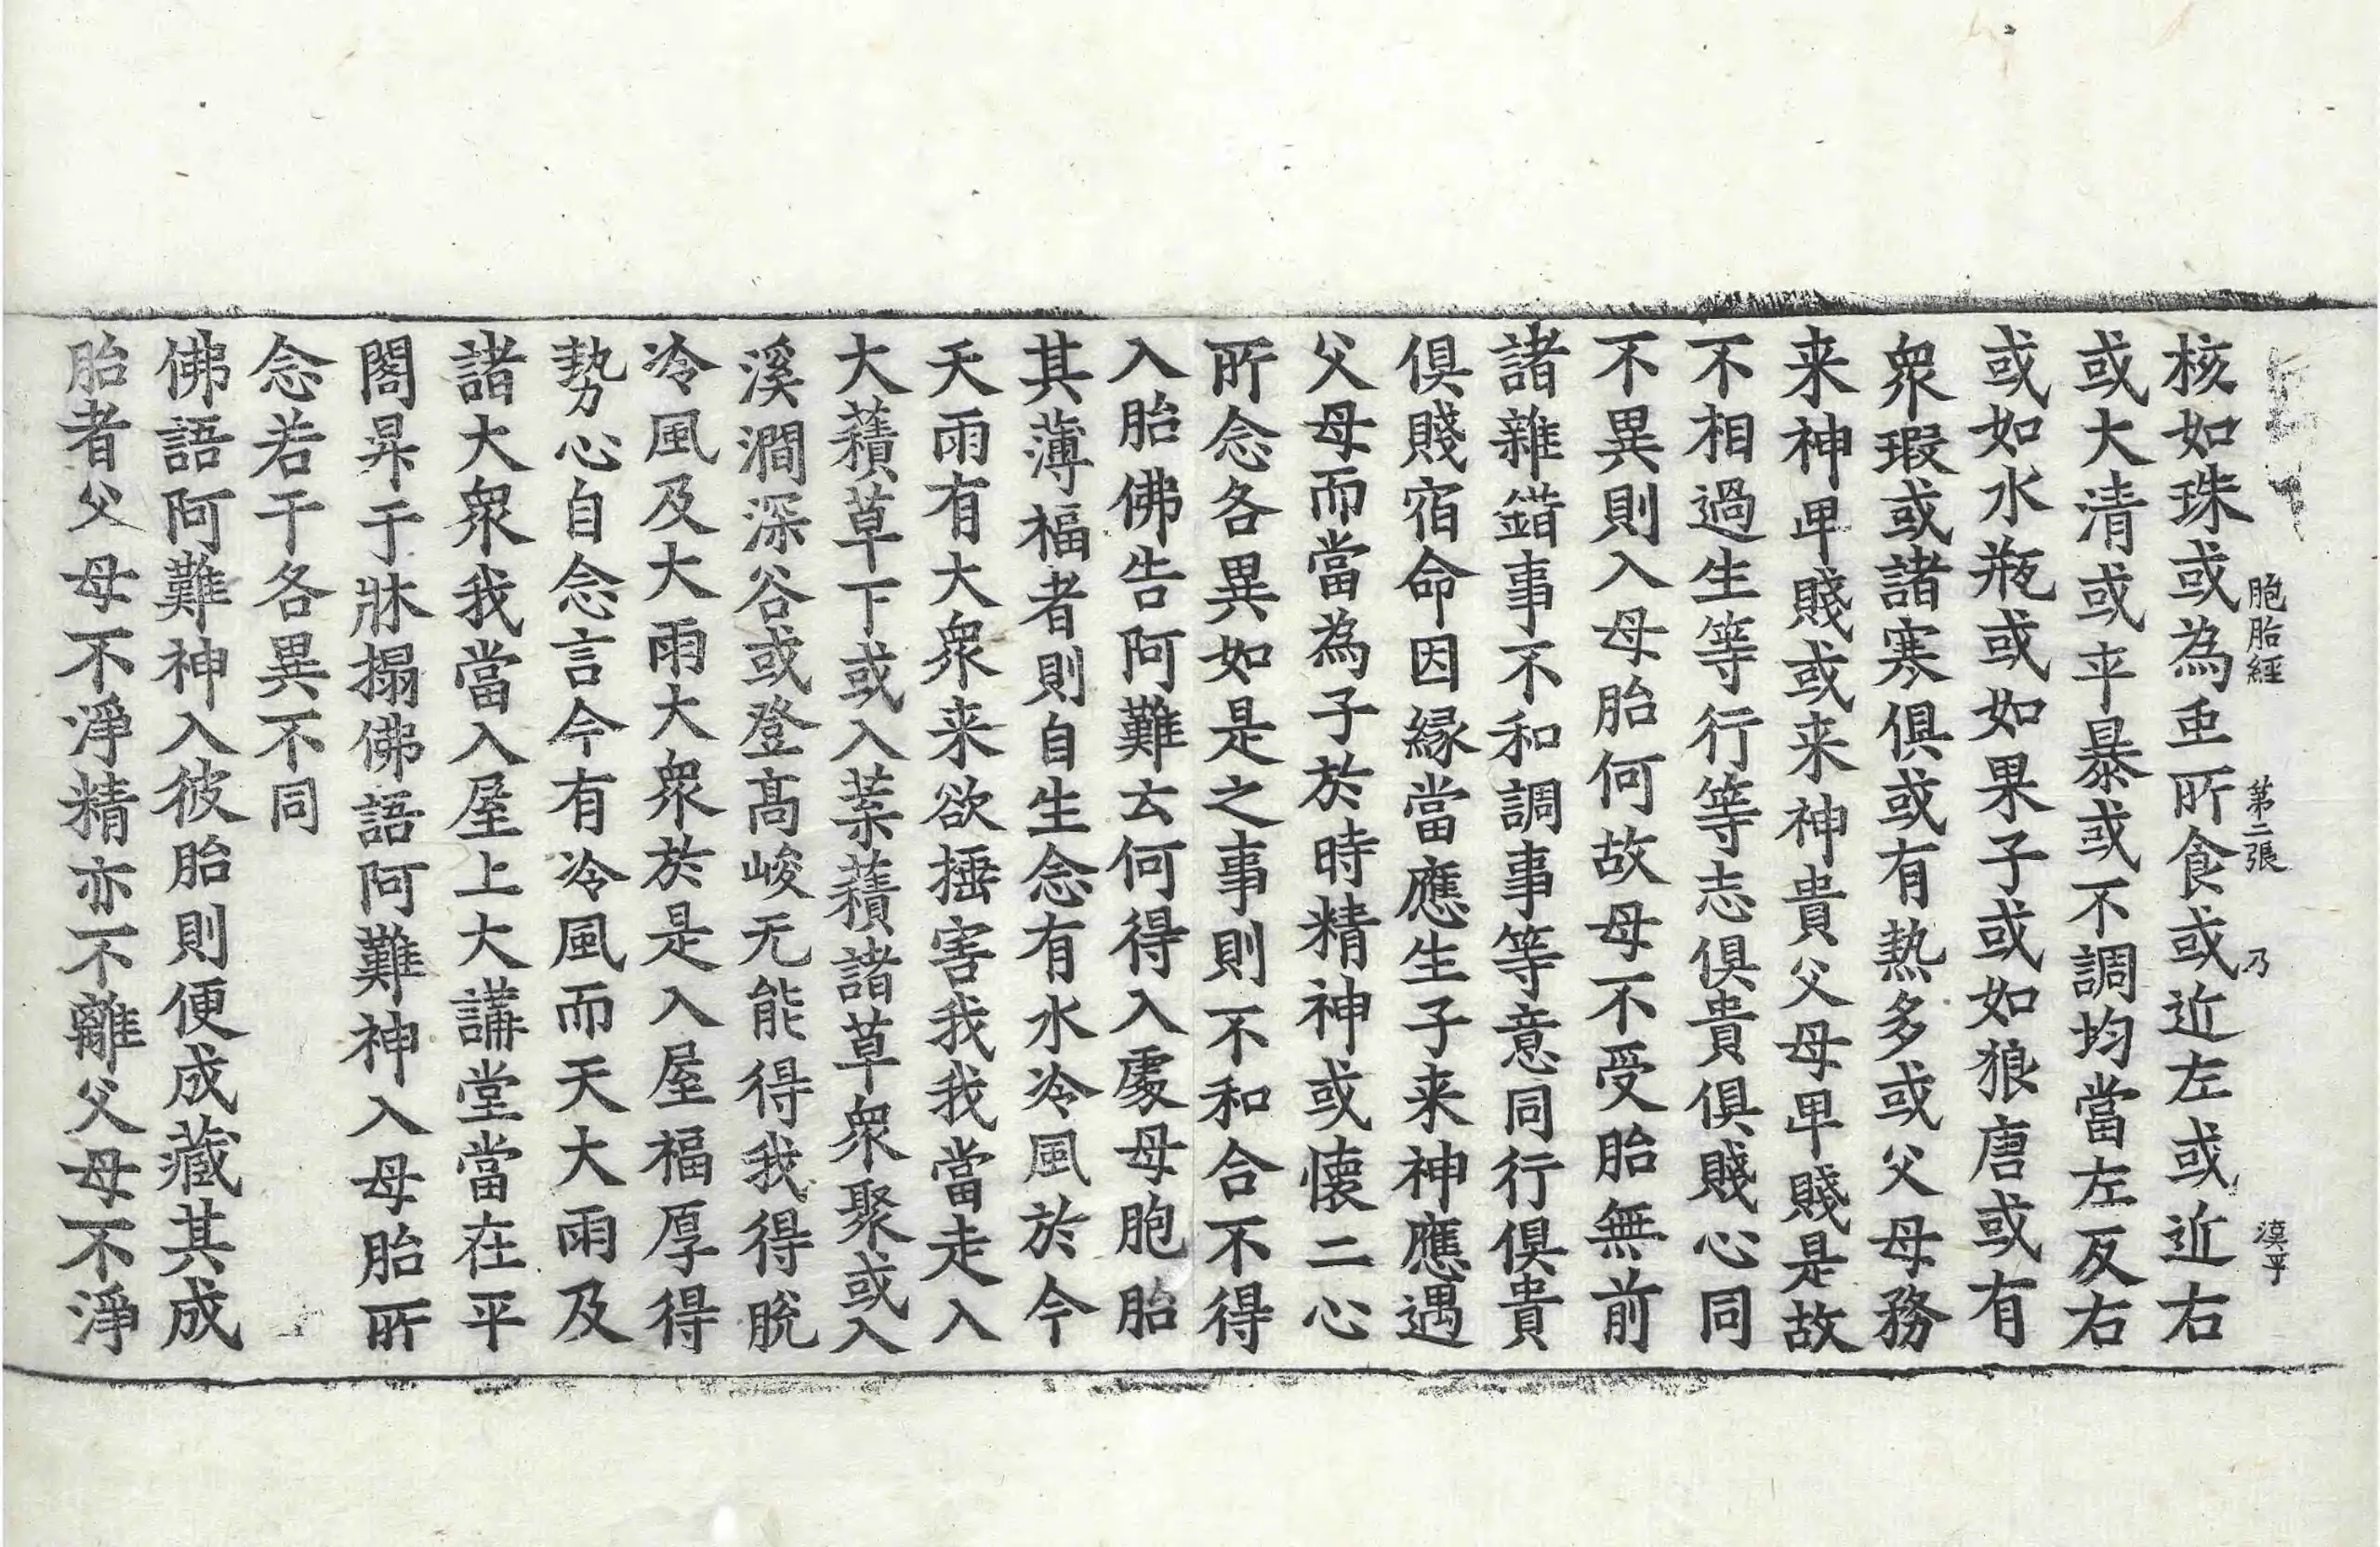 胞胎經 第二張 乃 漠乎
核如珠或為䖝所食或近左或近右
或大清或卒暴或不調均當左反右
或如水瓶或如果子或如狼唐或有
衆瑕或諸寒俱或有热多或父母務
来神卑賤或来神貴父母卑賤是故
不相過生等行等志俱貴俱賤心同
不異則入母胎何故母不受胎無前
諸雜錯事不和調事等意同行俱貴
俱賤宿命因縁當應生子来神應遇
父母而當為子於時精神或懐二心
所念各異如是之事則不和合不得
入胎佛告阿難云何得入處母胞胎
其薄福者則自生念有水冷風於今
天雨有大衆来欲捶害我我當走入
大𧂐草下或入葉𧂐諸草衆聚或入
溪澗深谷或登髙峻无能得我得脱
冷風及大雨大衆於是入屋福厚得
勢心自念言今有冷風而天大雨及
諸大衆我當入屋上大講堂當在平
閣昇于牀搨佛語阿難神入母胎所
念若干各異不同
佛語阿難神入彼胎則便成藏其成
胎者父母不淨精亦不離父母不淨